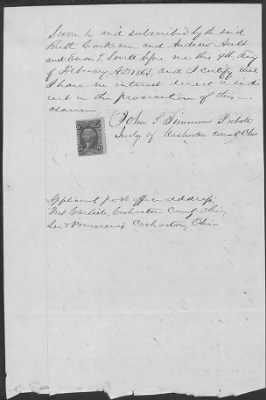 Sworn to and subscribed by the said
Ruth Corkran and Andrew Ault
and before me this 9th day
of February AD 1864, and I certify that
I have no interest direct or indi
rect in the prosecution of this
claim
John Simmons Probate
Judge of Coshocton county Ohio
Applicant post office address
West Carlisle, Coshocton County Ohio
Coshocton, Ohio